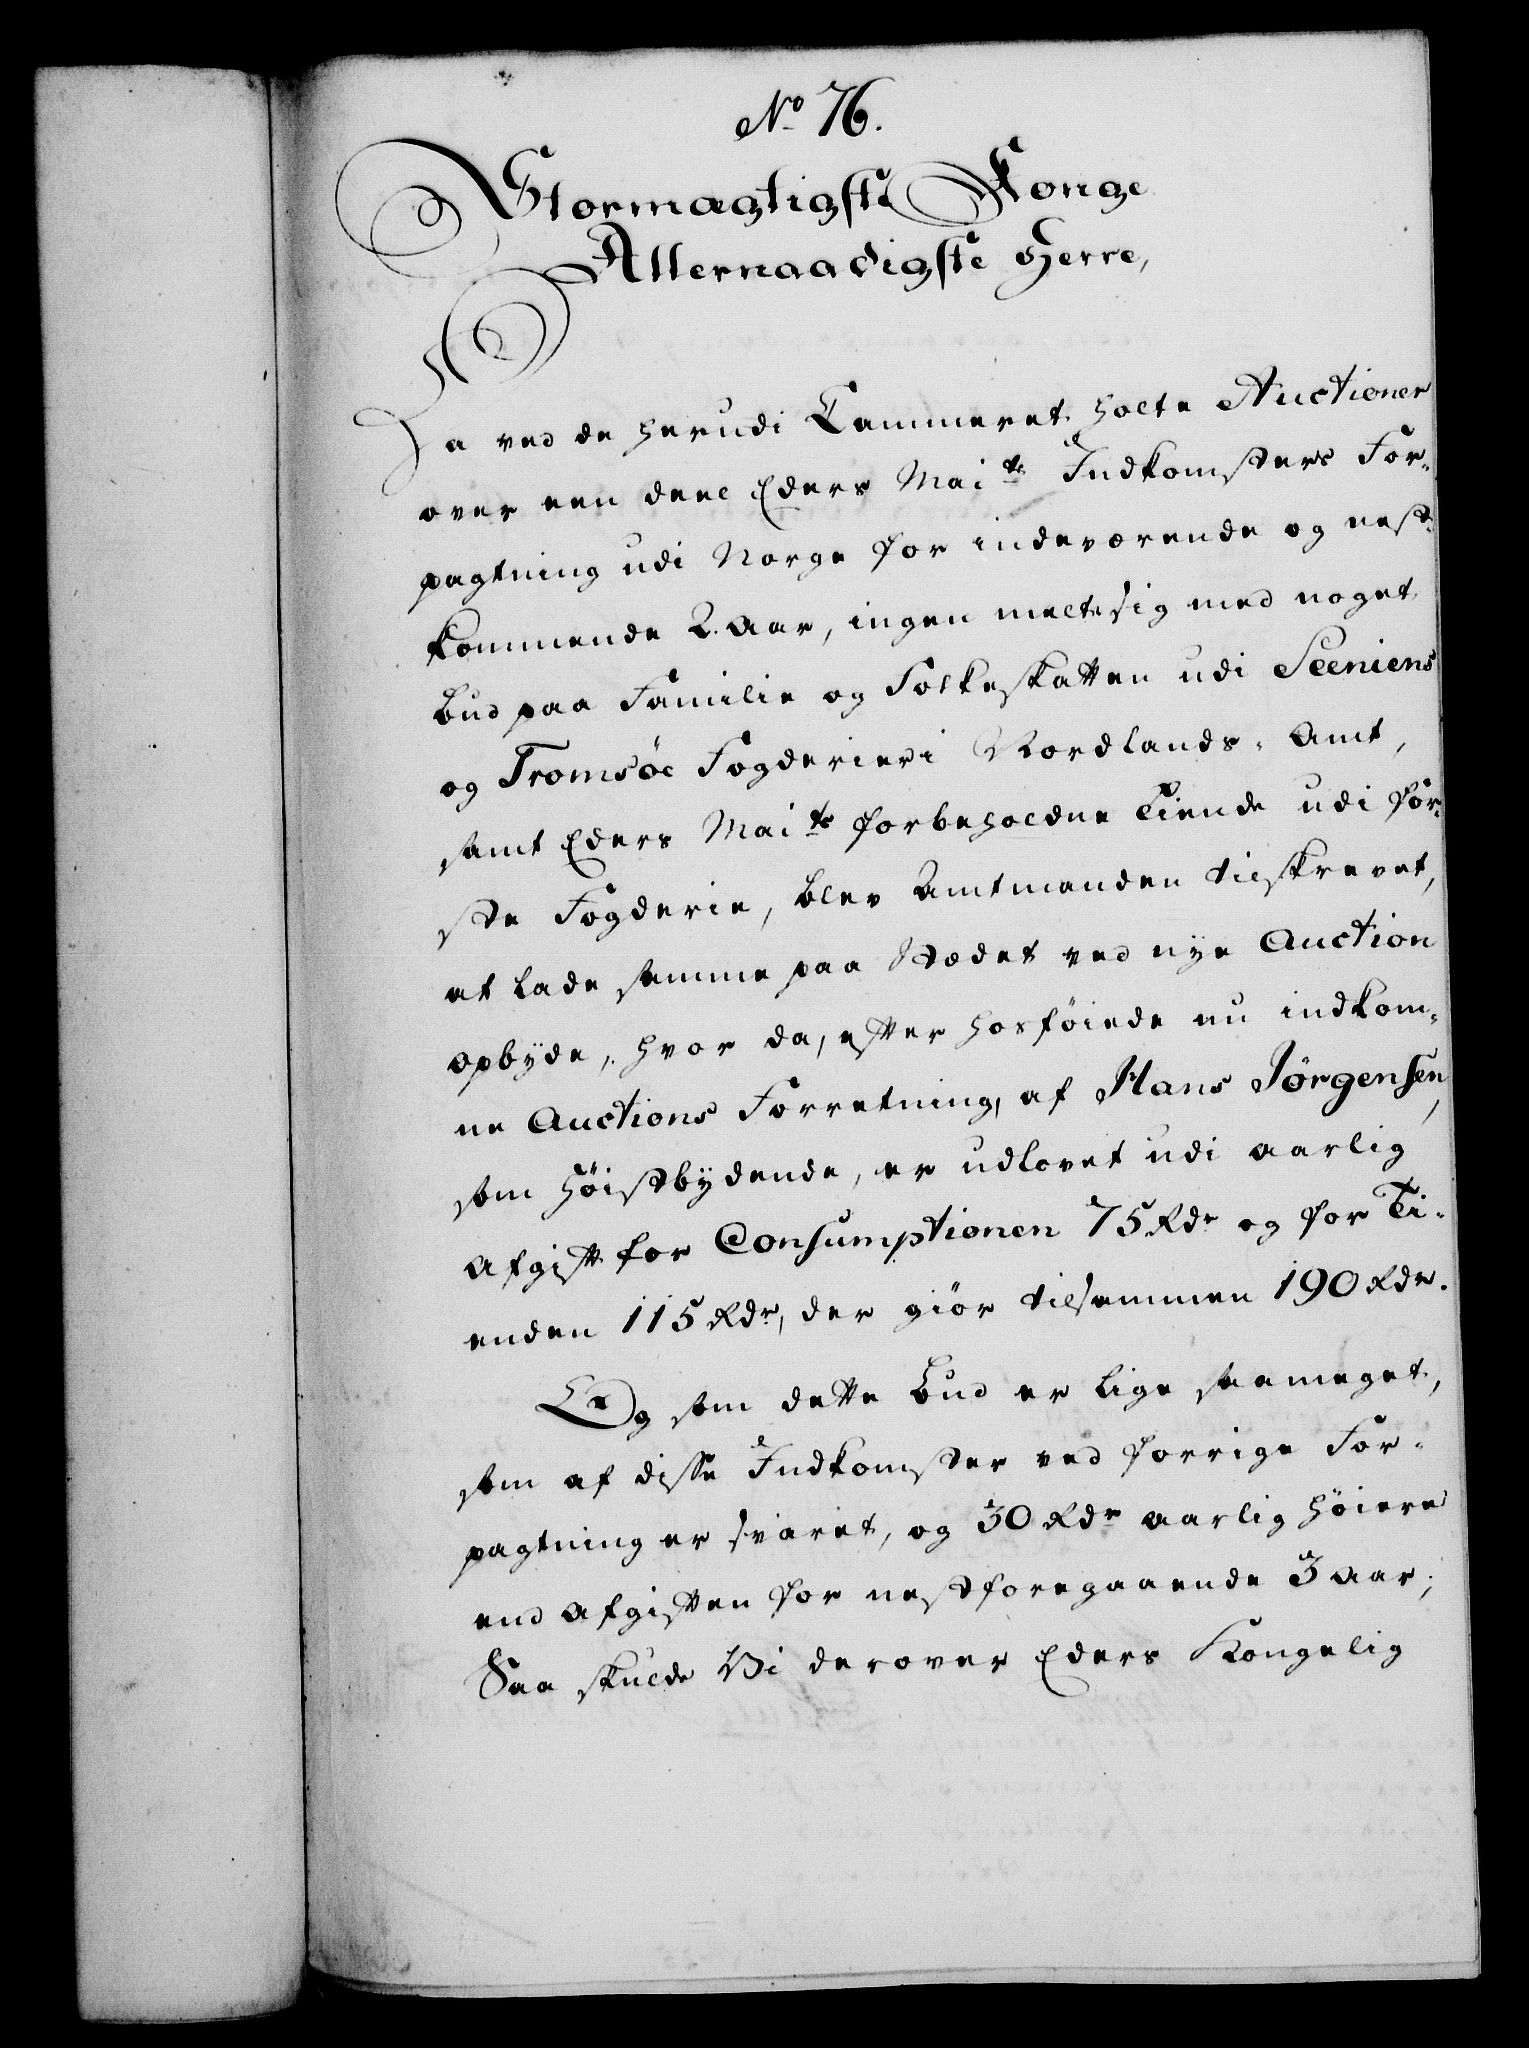 No 76.
Stormægtigste Konge
Allernaadigste Herre,
Da ved de herudi Cammeret holte Auctioner
over een deel Eders Maits Indkomsters For-
pagtning udi Norge for indeværende og nest-
kommende 2. Aar, ingen meltte sig med noget
bud paa Familie og Folkeskatten udi Seeniens
og Tromsöe Fogderier i Nordlands-Amt,
samt Eders Maits forbeholdne Tiende udi för-
ste Fogderie, blev Amtmanden tilskrevet,
at lade samme paa Stædet ved nye Auction
opbyde, hvor da, efter hosföiede nu indkom-
ne Auctions Forretning, af Hans Jörgensen,
som höistbydende, er udlovet udi aarlig
Afgift for Consumptionen 75 Rdr og for Ti-
enden 115 Rdr, der giör tilsammen 190 Rdr.
Og som dette bud er lige saameget,
som af disse Indkomster ved forrige For-
pagtning er svaret, og 30 Rdr aarlig höiere
end Afgiften for nestforegaaende 3 Aar;
Saa skulde Vi derover Eders Kongelig